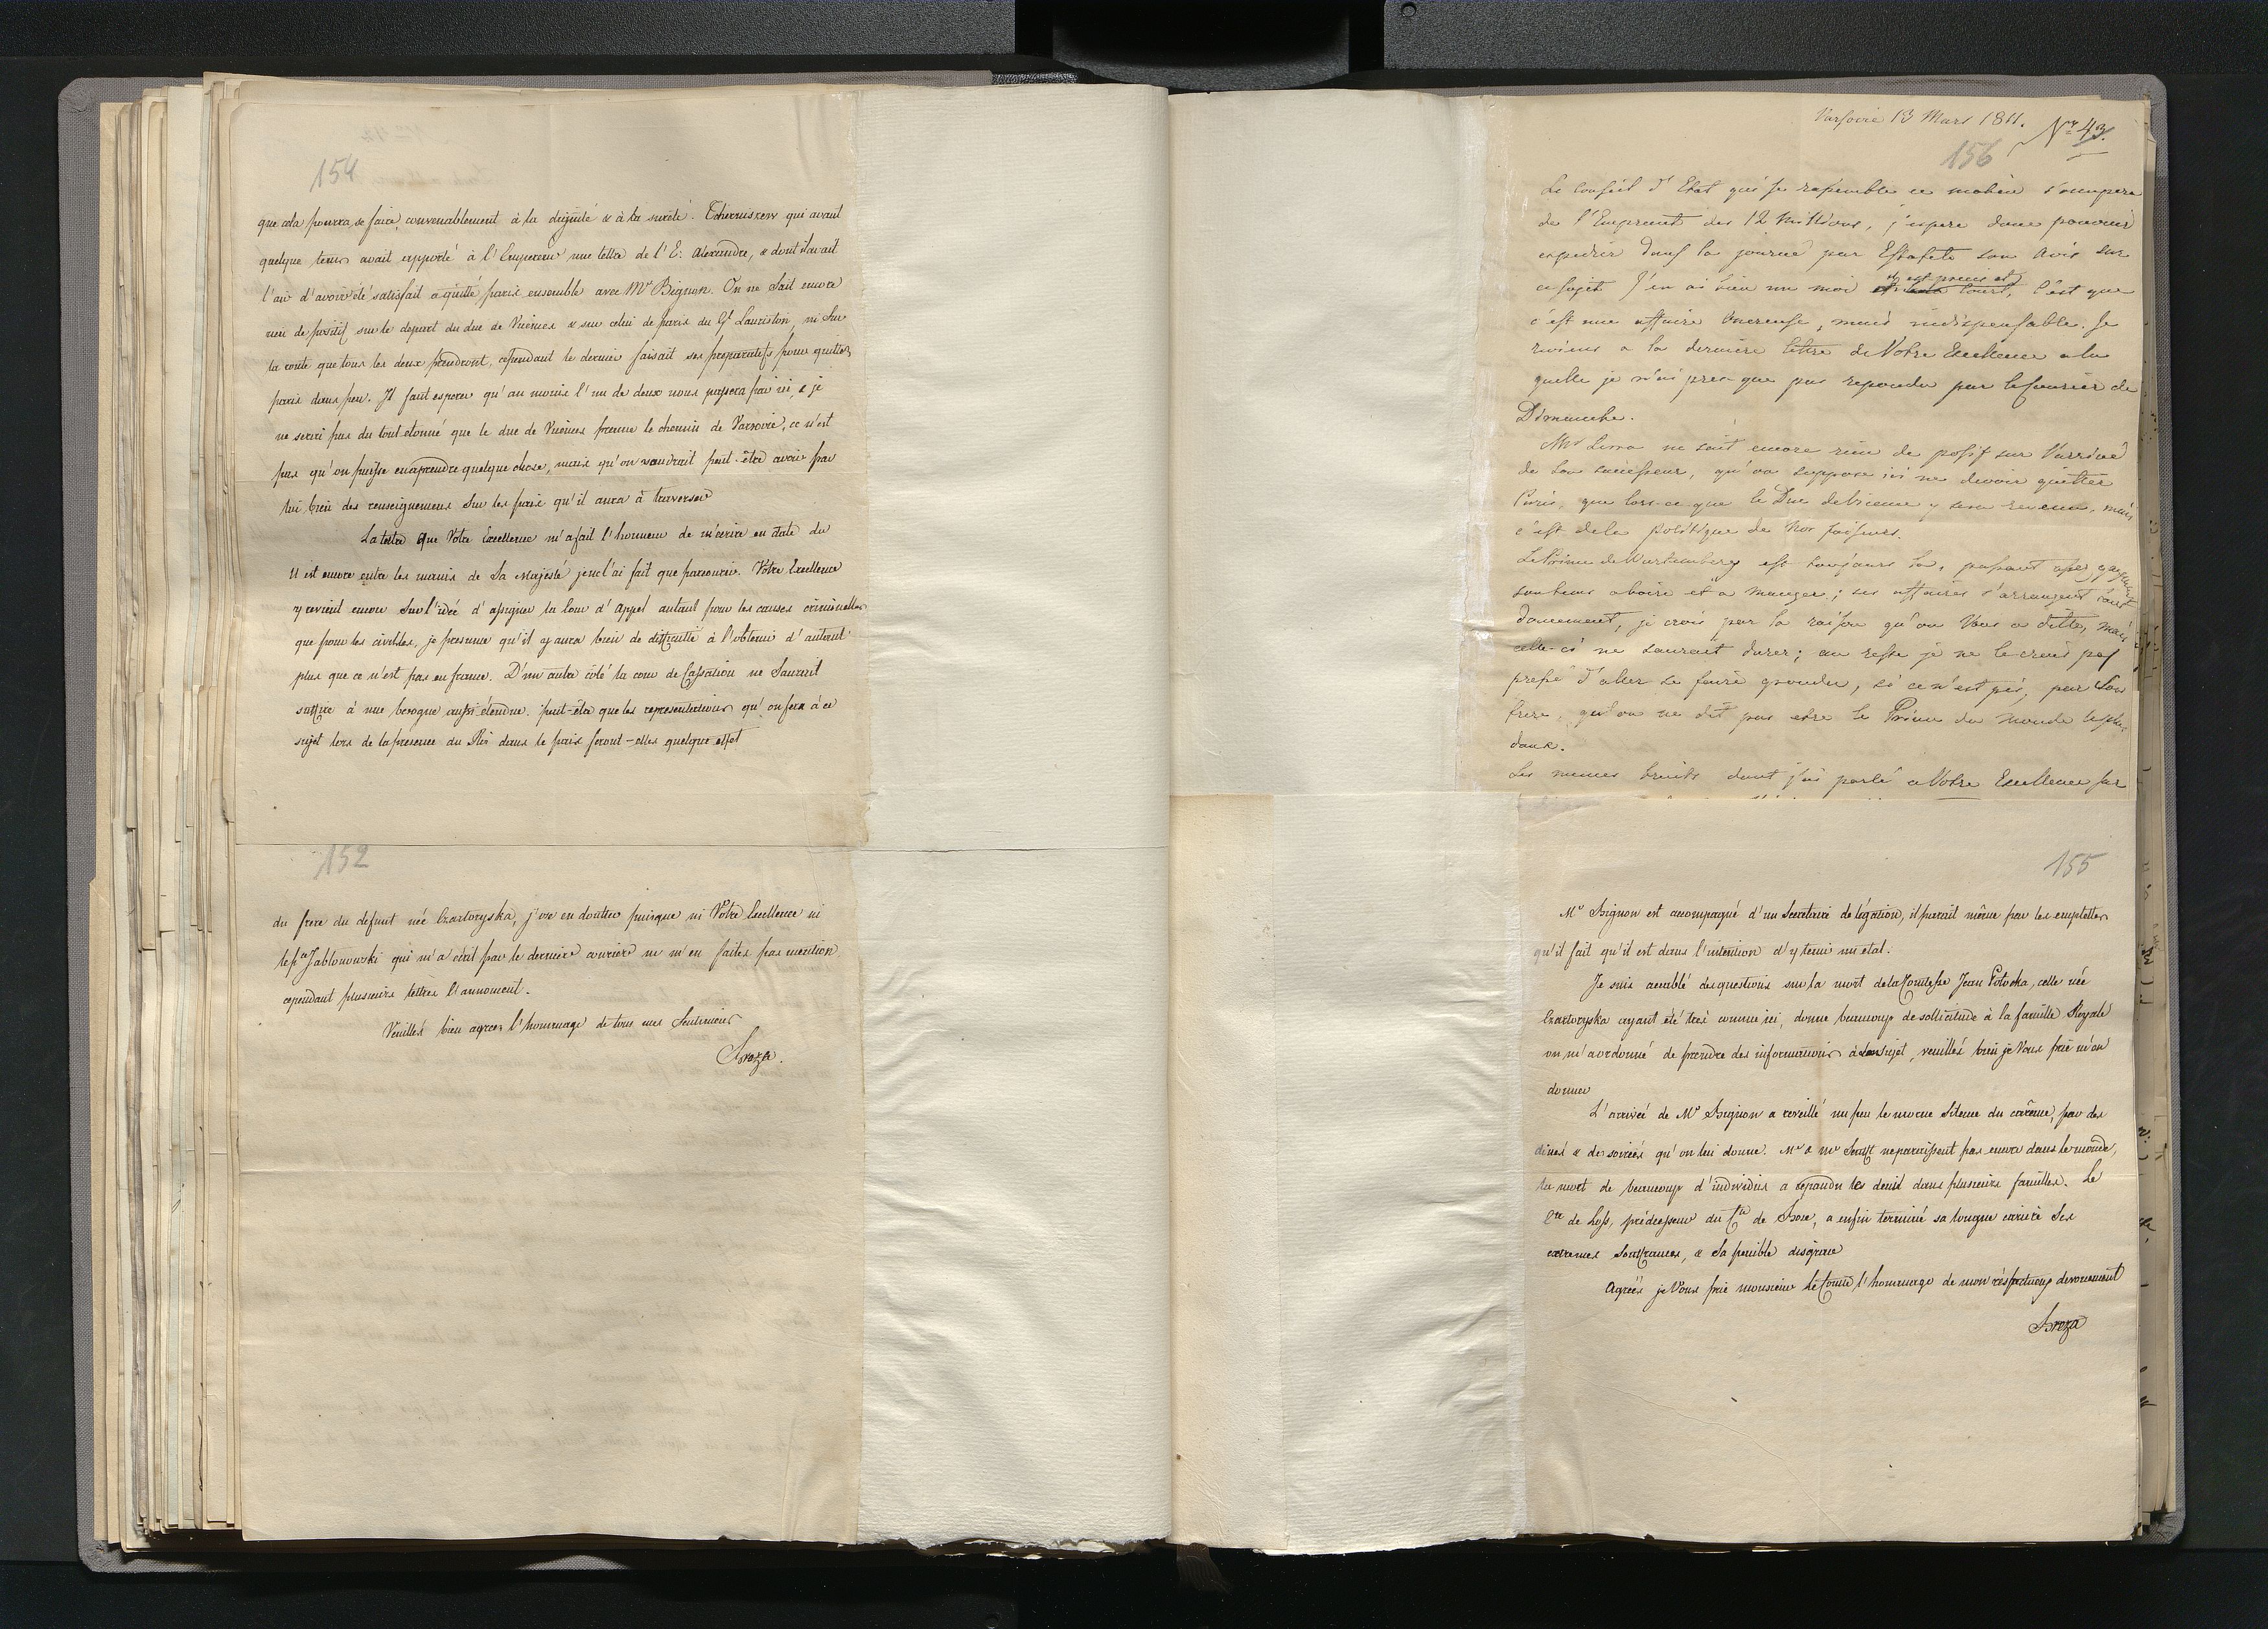 154
que cela pourra se faire, convenablement à la dignité & à la sureté. qui avant
quelque tems avait apporté à l'Empereur une lettre de l'E. Alexandre, & dont il avait
l'air d'avoir été satisfait a quitté paris ensemble avec Mr Bignon. On ne sait encore
rien de positif sur le depart du duc de Vicence & sur celui de paris du Gl Lauriston, ni sur
la route que tous les deux prendront, cependant le dernier faisait ses preparatifs pour quitter
paris dans peu. Il faut esperer qu'au moins l'un de deux nous passera par ici, & je
ne serai pas du tout etonné que le duc de Vicence prenne le chemin de Varsovie, ce n'est
pas qu'on puisse en aprendre quelque chose, mais qu'on voudrait peut-être avoir par
lui bien des renseignemens sur les païs qu'il aura à traverser
La lettre que Votre Excellence m'a fait l'honneur de m'écrire en date du
11 est encore entre les mains de Sa Majesté je ne l'ai fait que parcourir. Votre Excellence
y revient encore sur l'idée d'assigner la Cour d'Appel autant pour les causes criminelles
que pour les civiles, je presume qu'il y aura bien de difficulté à l'obtenir d'autant
plus que ce n'est pas en france. D'un autre côté la cour de Cassation ne Saurait
suffire à une besogne aussi étendue. peut-être que les representations qu'on fera à ce
sujet lors de la présence du Roi dans le païs feront-elles quelque effet
152
du frere du defunt née Czartoryska, j'ose en douter puisque ni Votre Excellence ni
le pce Jablonowski qui m'a écrit par le dernier courier ne m'en faites pas mention
cependant plusieurs lettres l'annoncent.
Veuillés bien agréer l'hommage de tous mes Sentimens
Breza.
Varsovie 13 Mars 1811. Nr 43.
156
Le Conseil d'Etat qui se rassemble ce matin s'occupera
de l'Emprunt des 12 Millions, j'espere donc pouvoir
expedier dans la journé par Estafete son avis sur
ce sujet J'en ai bien un moi et est precis et court, c'est que
c'est une affaire onereuse, mais indispensable. Je
reviens a la derniere lettre de Votre Excellence a la
quelle je n'ai pres-que pas repondu par le Courier de
Dimanche.
Mr Serra ne sait encore rien de posif sur l'arrivée
de son successeur, qu'on suppose ici ne devoir quitter
Paris, que lors-ce que le Duc de Vicence y sera revenu, mais
c'est de la politique de nos
Le Prince de Wurtemberg est toujours la, passant
son tems a boire et a manger; ses affaires s'arrangent tout
doucement, je crois par la raison qu'on Vous a ditte, mais
celle-ci ne saurait durer; au reste je ne le crois pas
pressé d'aller se faire gronder, si ce n'est pas, par Son
frere, qu'on ne dit pas etre le Prince du monde le plus
doux.
Les memes bruits dont j'ai parlé a Votre Excellence sur
155
Mr Bignon est acompagné d'un Secretaire de légation, il parait même par les emplettes
qu'il fait qu'il est dans l'intention d'y tenir un etat.
Je suis acablé des questions sur la mort de la Comtesse Jean Potocka, celle née
Czartoryska ayant été très connue ici, donne beaucoup de sollicitude à la famille Royale
on m'a ordonné de prendre des informations à son sujet, veuillés bien je Vous prie m'en
donner
L'arrivé de Mr Bignon a reveillé un peu le morne Silence du carême, par des
dinés & des soirées qu'on lui donne. Mr & Me Senfft ne paraissent pas encore dans le monde,
la mort de beaucoup d'individus a repandu les deuil dans plusieurs familles. Le
Cte de Loss, prédecesseur du Cte de Bose, a enfin terminé sa longue cariere Ses
extremes Souffrances, & Sa penible disgrace
Agréés je Vous prie monsieur le Comte l'hommage de mon respectueux devouement
Breza